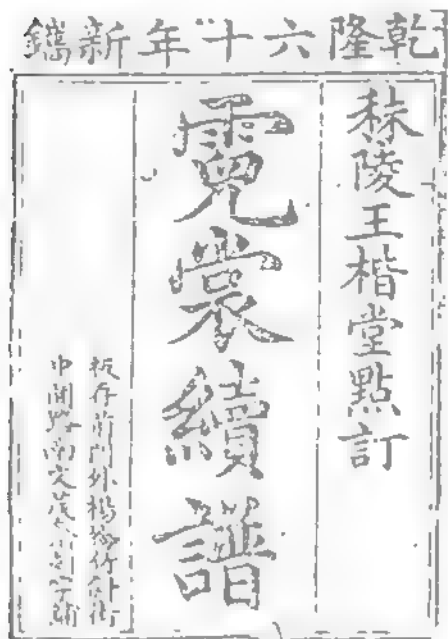 乾隆六十年新鐫
秣陵王楷堂點訂
霓裳續譜
板存前門外楊梅竹斜街
中間路南文茂齋刻字鋪